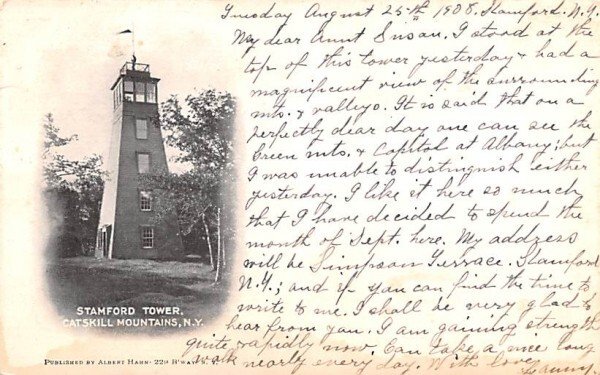 Tuesday August 25th 1908. Stamford. N.Y.
My dear Aunt Susan. I stood at the
top of this tower yesterday & had a
magnificent view of the surrounding
mts. & valleys. It is said that on a
perfectly clear day one can see the
Green mts. & Capitol at Albany; but
I was unable to distinguish either
yesterday. I like it here so much
that I have decided to spend the
month of Sept. here. My address
will be Simpson Terrace. Stamford
N.Y.; and if you can find the time to
write to me. I shall be very glad to
hear from you. I am gaining strength
quite rapidly now. Can take a nice long
walk nearly every day. With love
STAMFORD TOWER,
CATSKILL MOUNTAINS, N.Y.
PUBLISHED BY ALBERT HAHN· 229 B'WAY